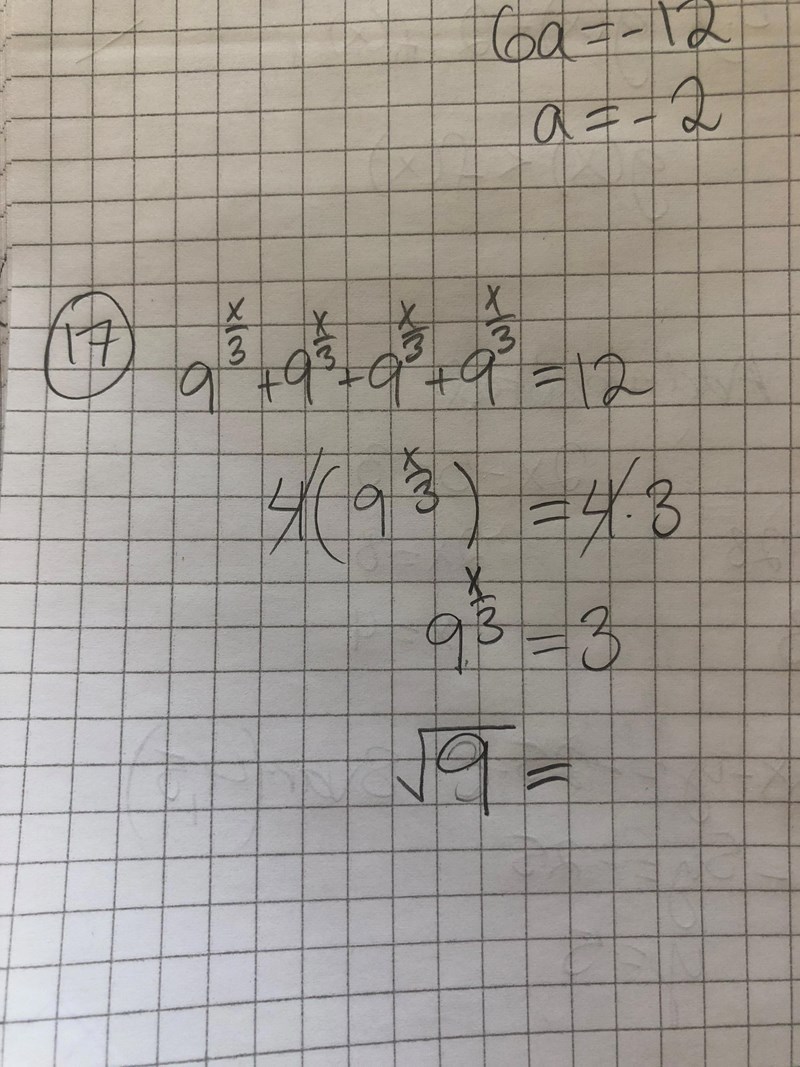 6a=-12
a=-2
17 9^(x/3)+9^(x/3)+9^(x/3)+9^(x/3)=12
4(9^(x/3))=4·3
9^(x/3)=3
√9=